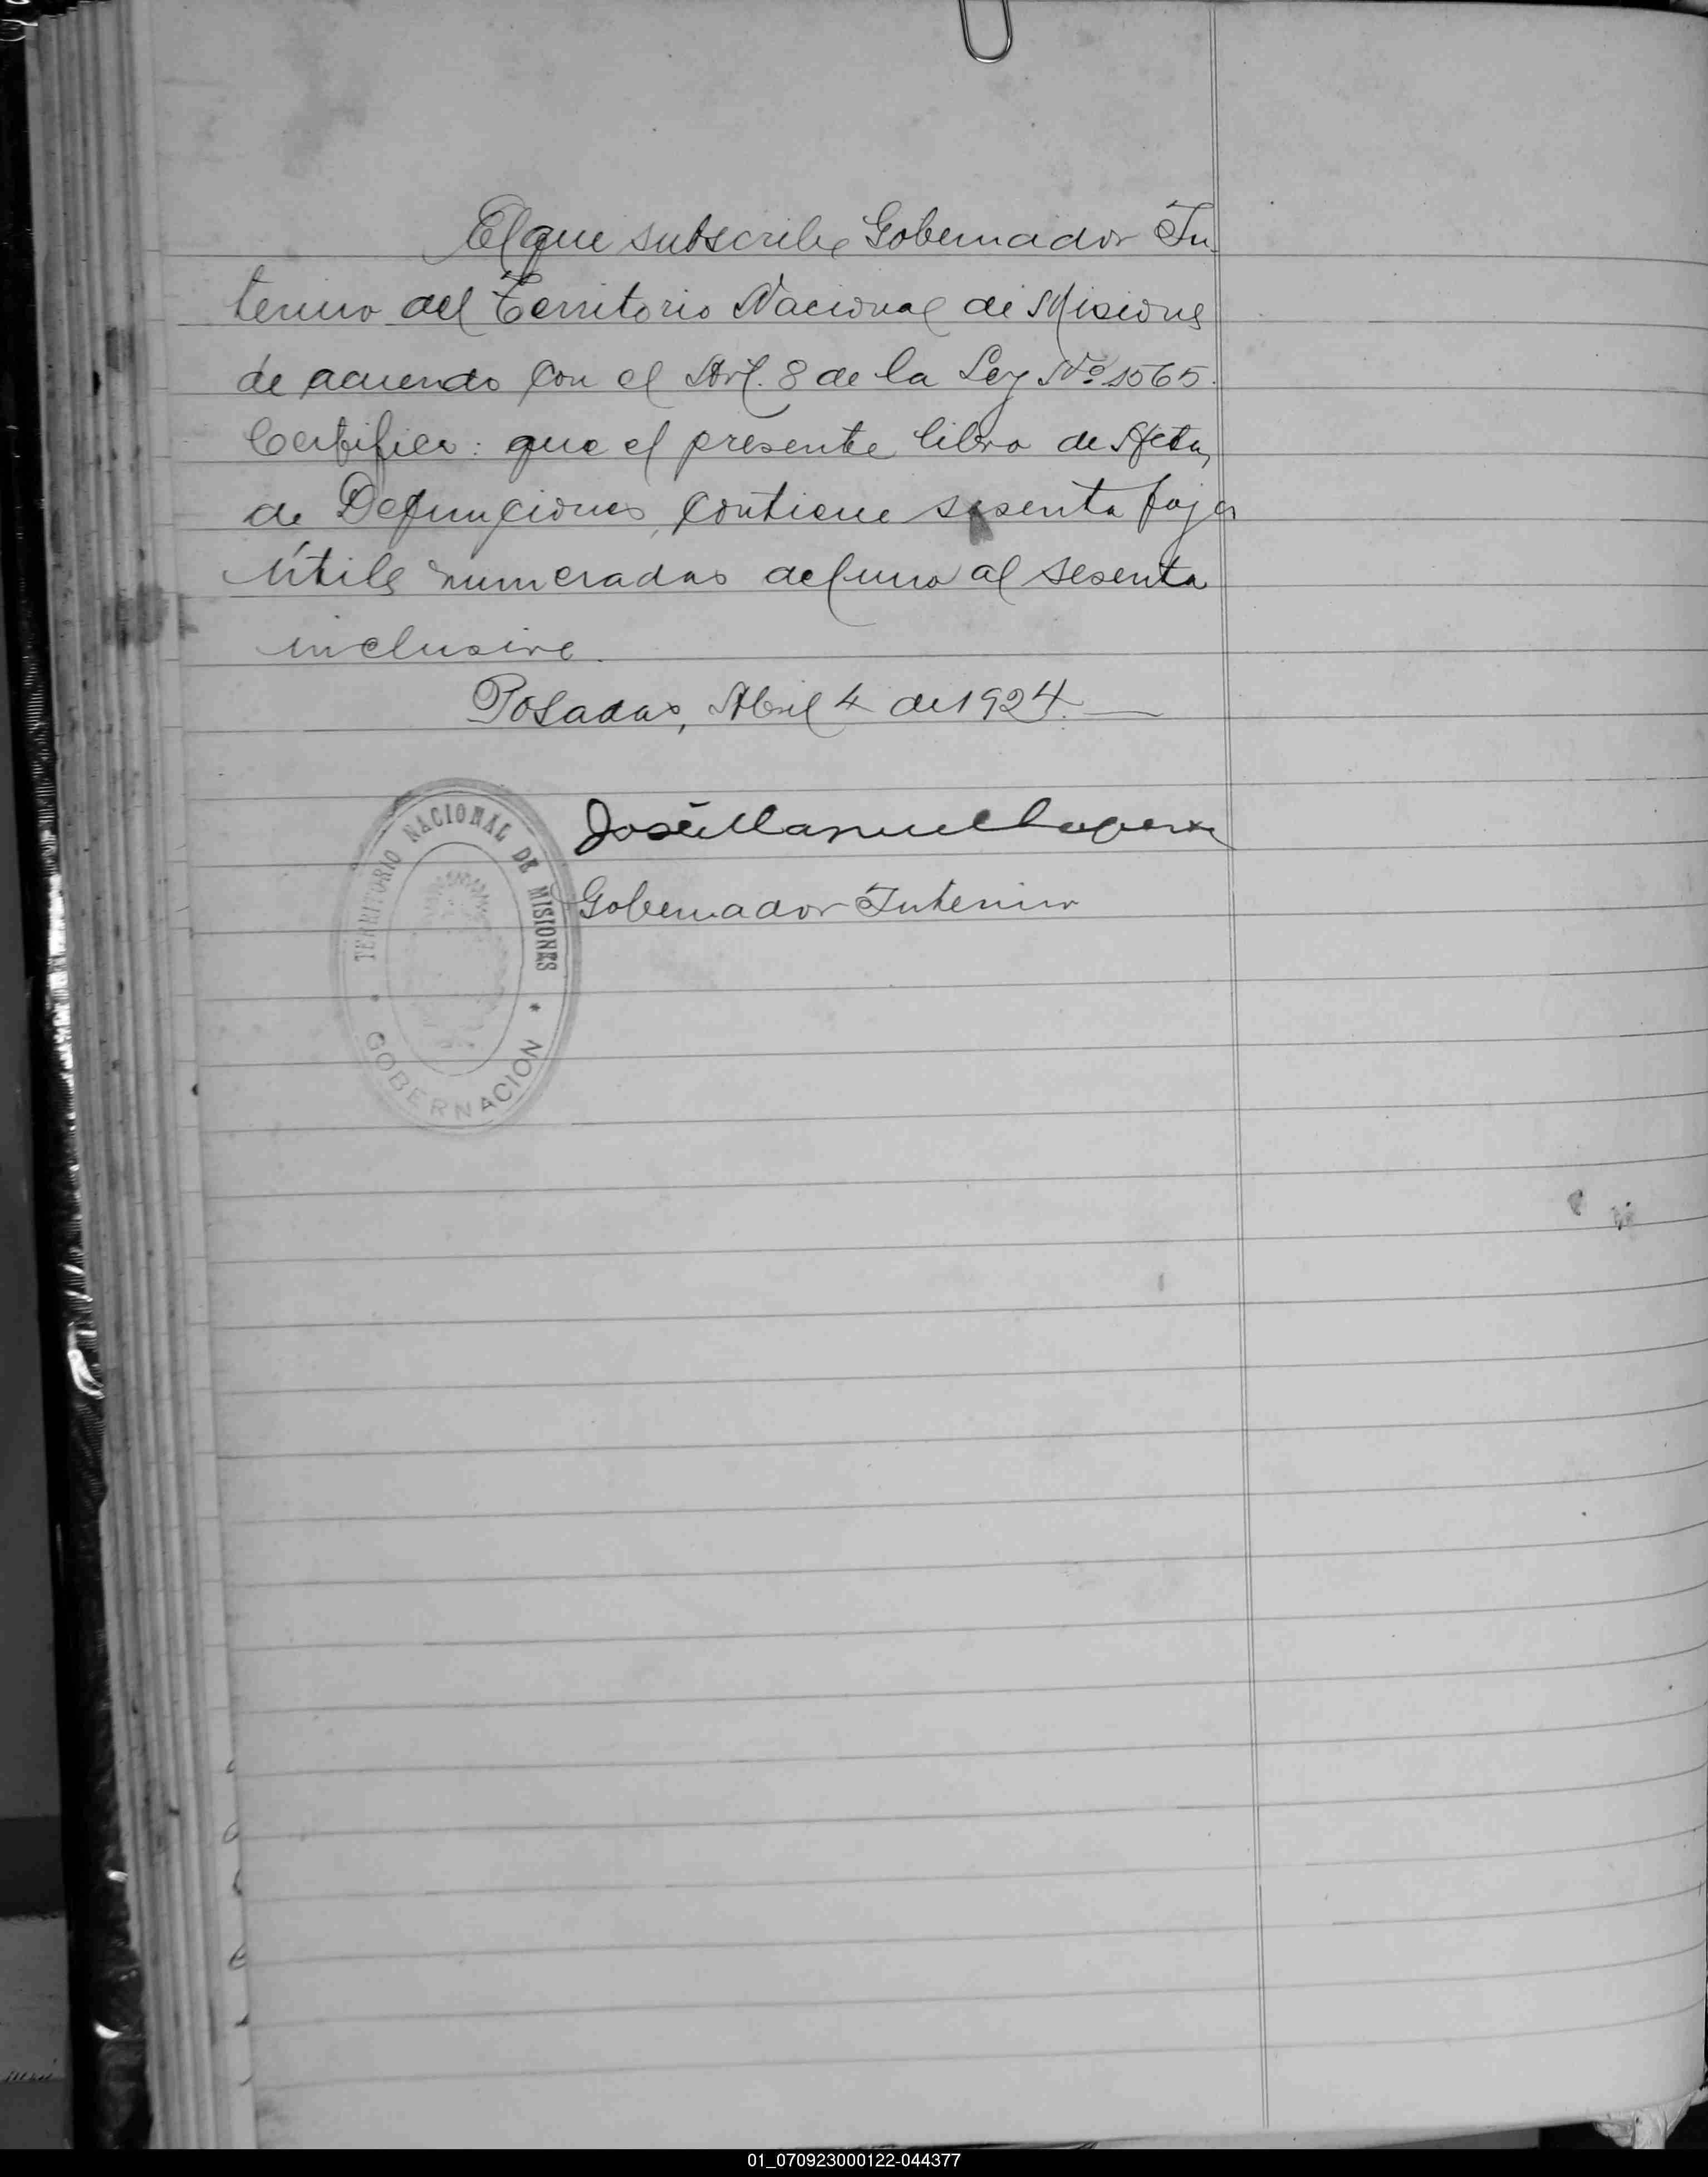 El que subscribe Gobernador In-
terino del Territorio Nacional de Misiones
de acuerdo con el Art. 8 de la Ley Nº 1565.
Certifica: que el presente libro de Actas
de Defunciones, contiene sesenta fojas
útiles numeradas del uno al sesenta
inclusive.
Posadas, Abril 4 de 1924.
José Manuel
Gobernador Interino
TERRITORIO NACIONAL DE MISIONES
GOBERNACION
01_070923000122-044377